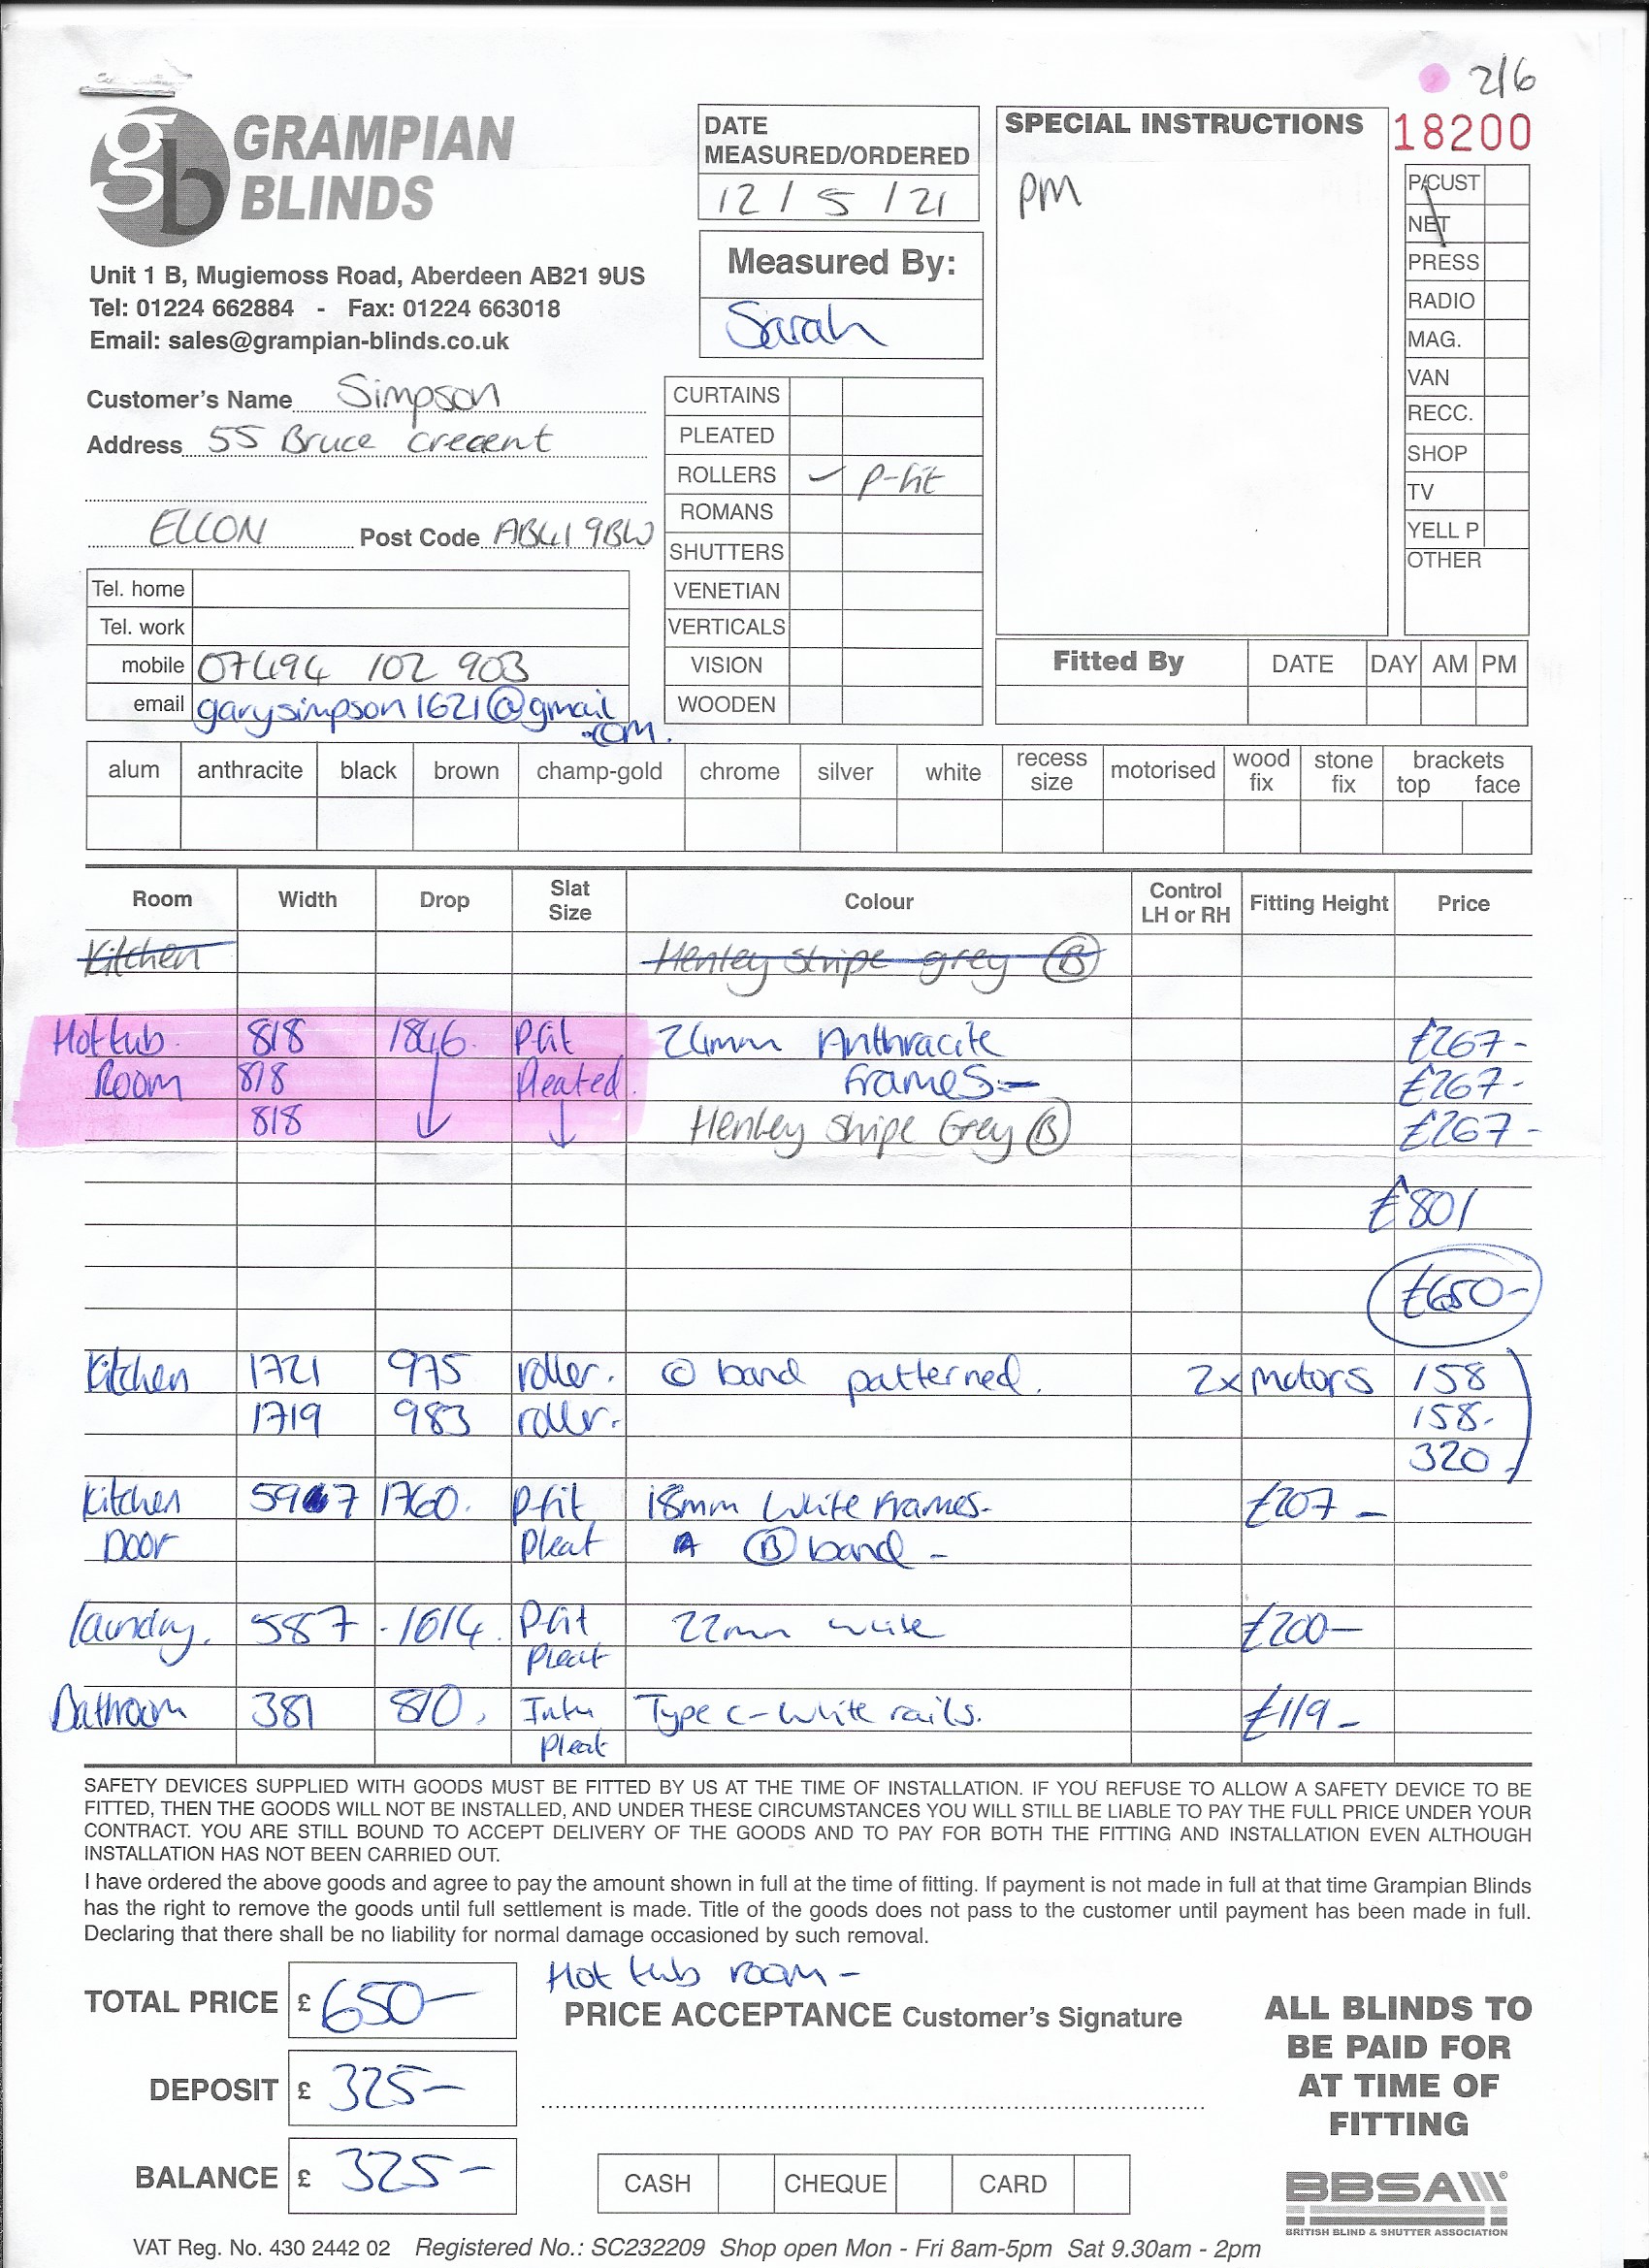 2/6
GRAMPIAN
BLINDS
Unit 1 B, Mugiemoss Road, Aberdeen AB21 9US
Tel: 01224 662884 - Fax: 01224 663018
Email: sales@grampian-blinds.co.uk
DATE
MEASURED/ORDERED
12 / 5 / 21
Measured By:
Sarah
SPECIAL INSTRUCTIONS
PM
18200
P/CUST
NET
PRESS
RADIO
MAG.
VAN
RECC.
SHOP
TV
YELL P
OTHER
Customer's Name Simpson
Address 55 Bruce Crecent
ELLON Post Code AB41 9BW
Tel. home
Tel. work
mobile 07494 102 903
email garysimpson1621@gmail
.com.
CURTAINS
PLEATED
ROLLERS ✓ P-fit
ROMANS
SHUTTERS
VENETIAN
VERTICALS
VISION
WOODEN
Fitted By DATE DAY AM PM
alum anthracite black brown champ-gold chrome silver white recess size motorised wood fix stone fix brackets top face
Room Width Drop Slat Size Colour Control LH or RH Fitting Height Price
Kitchen Henley Stripe grey B
Hot tub 818 1846. P-fit 24mm Anthracite £267-
Room 818 Pleated. frames- £267-
818 Henley Stripe Grey B £267-
£801
£650-
Kitchen 1721 975 roller. C band patterned. 2x Motors 158
1719 983 roller. 158-
320
Kitchen 597 1760. P-fit 18mm White Frames- £207-
Door Pleat B band -
laundry. 587 - 1614. P-fit 22mm white £200-
Pleat
Bathroom 381 810. Intu Type C - White rails. £119-
Pleat
SAFETY DEVICES SUPPLIED WITH GOODS MUST BE FITTED BY US AT THE TIME OF INSTALLATION. IF YOU REFUSE TO ALLOW A SAFETY DEVICE TO BE
FITTED, THEN THE GOODS WILL NOT BE INSTALLED, AND UNDER THESE CIRCUMSTANCES YOU WILL STILL BE LIABLE TO PAY THE FULL PRICE UNDER YOUR
CONTRACT. YOU ARE STILL BOUND TO ACCEPT DELIVERY OF THE GOODS AND TO PAY FOR BOTH THE FITTING AND INSTALLATION EVEN ALTHOUGH
INSTALLATION HAS NOT BEEN CARRIED OUT.
I have ordered the above goods and agree to pay the amount shown in full at the time of fitting. If payment is not made in full at that time Grampian Blinds
has the right to remove the goods until full settlement is made. Title of the goods does not pass to the customer until payment has been made in full.
Declaring that there shall be no liability for normal damage occasioned by such removal.
Hot tub room -
TOTAL PRICE £ 650-
PRICE ACCEPTANCE Customer's Signature
DEPOSIT £ 325-
BALANCE £ 325-
CASH CHEQUE CARD
ALL BLINDS TO
BE PAID FOR
AT TIME OF
FITTING
BBSA
BRITISH BLIND & SHUTTER ASSOCIATION
VAT Reg. No. 430 2442 02 Registered No.: SC232209 Shop open Mon - Fri 8am-5pm Sat 9.30am - 2pm